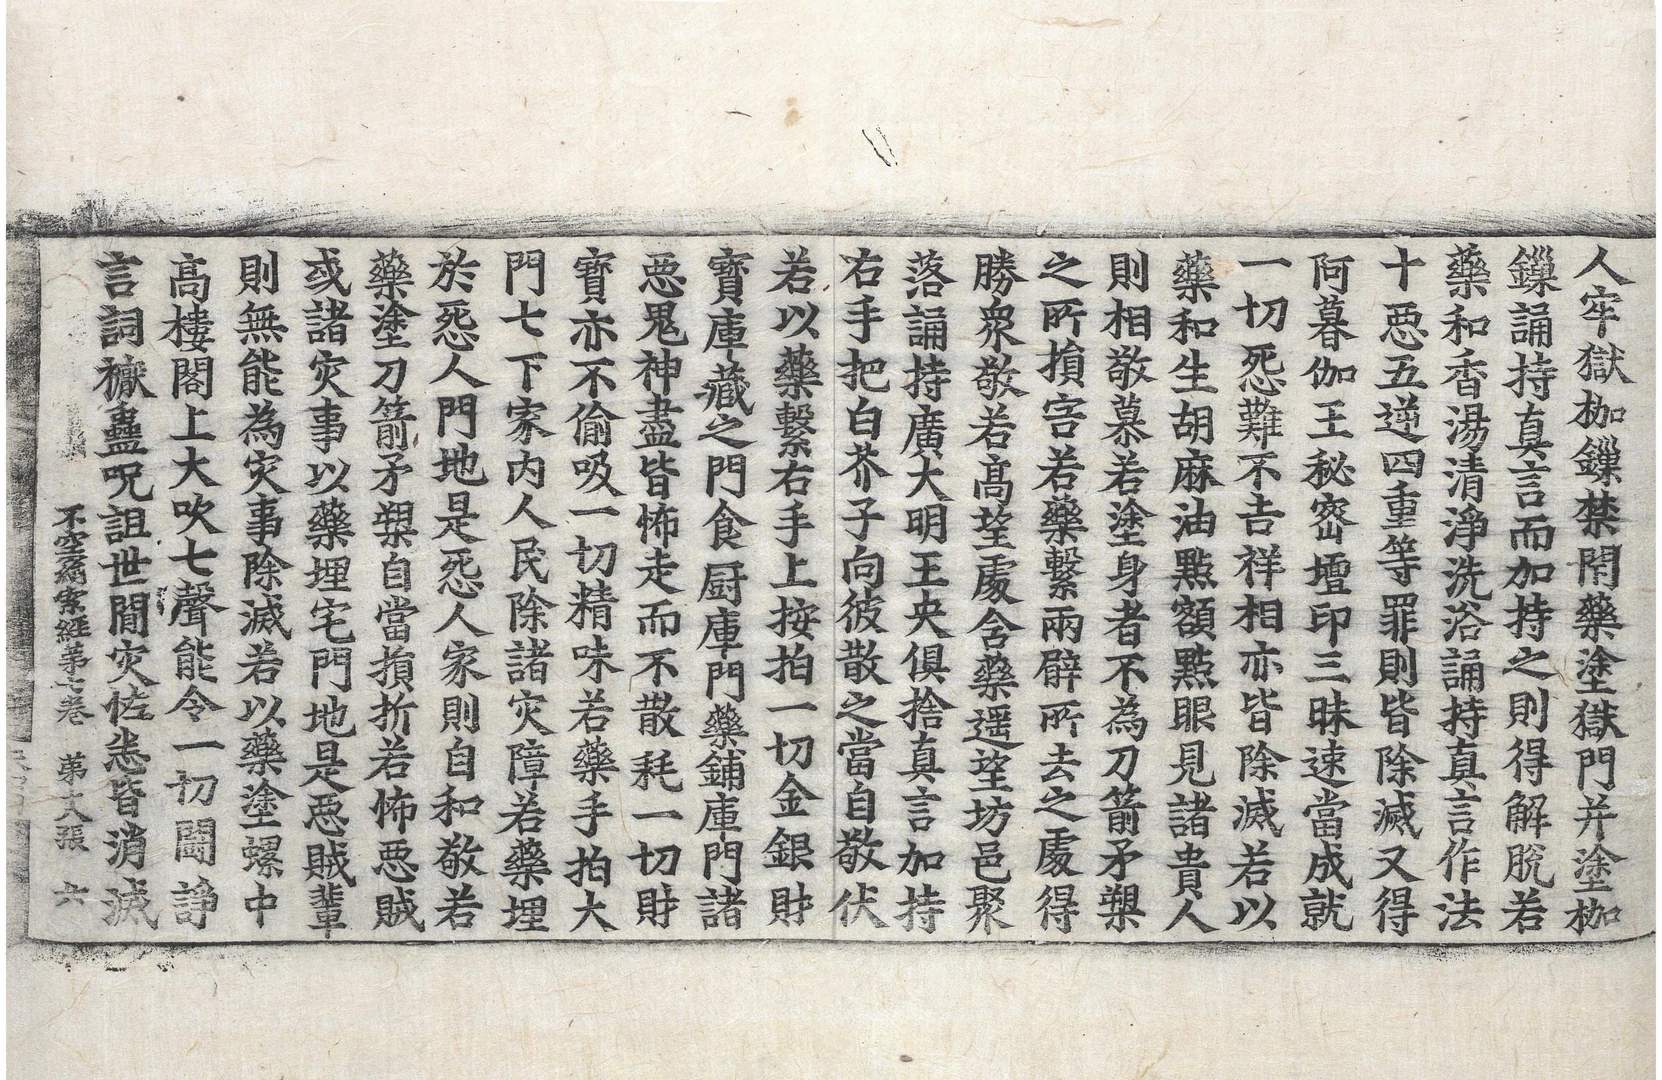 人牢獄枷鏁禁閇藥塗獄門并塗枷
鏁誦持真言而加持之則得解脫若
藥和香湯清淨洗浴誦持真言作法
十惡五逆四重等罪則皆除滅又得
阿暮伽王秘密壇印三昧速當成就
一切恐難不吉祥相亦皆除滅若以
藥和生胡麻油點額點眼見諸貴人
則相敬慕若塗身者不為刀箭矛槊
之所損害若藥繫兩臂所去之處得
勝衆敬若高望處含藥遥望坊邑聚
落誦持廣大明王央俱捨真言加持
右手把白芥子向彼散之當自敬伏
若以藥繫右手上按拍一切金銀財
寶庫藏之門食厨庫門藥鋪庫門諸
惡鬼神盡皆怖走而不散耗一切財
寶亦不偷吸一切精味若藥手拍大
門七下家內人民除諸灾障若藥埋
於惡人門地是惡人家則自和敬若
藥塗刀箭矛槊自當損折若怖惡賊
或諸灾事以藥埋宅門地是惡賊輩
則無能為灾事除滅若以藥塗螺中
高樓閣上大吹七聲能令一切鬪諍
言詞禳蠱呪詛世間灾恠悉皆消滅
不空羂索經第七卷 第十六張 六